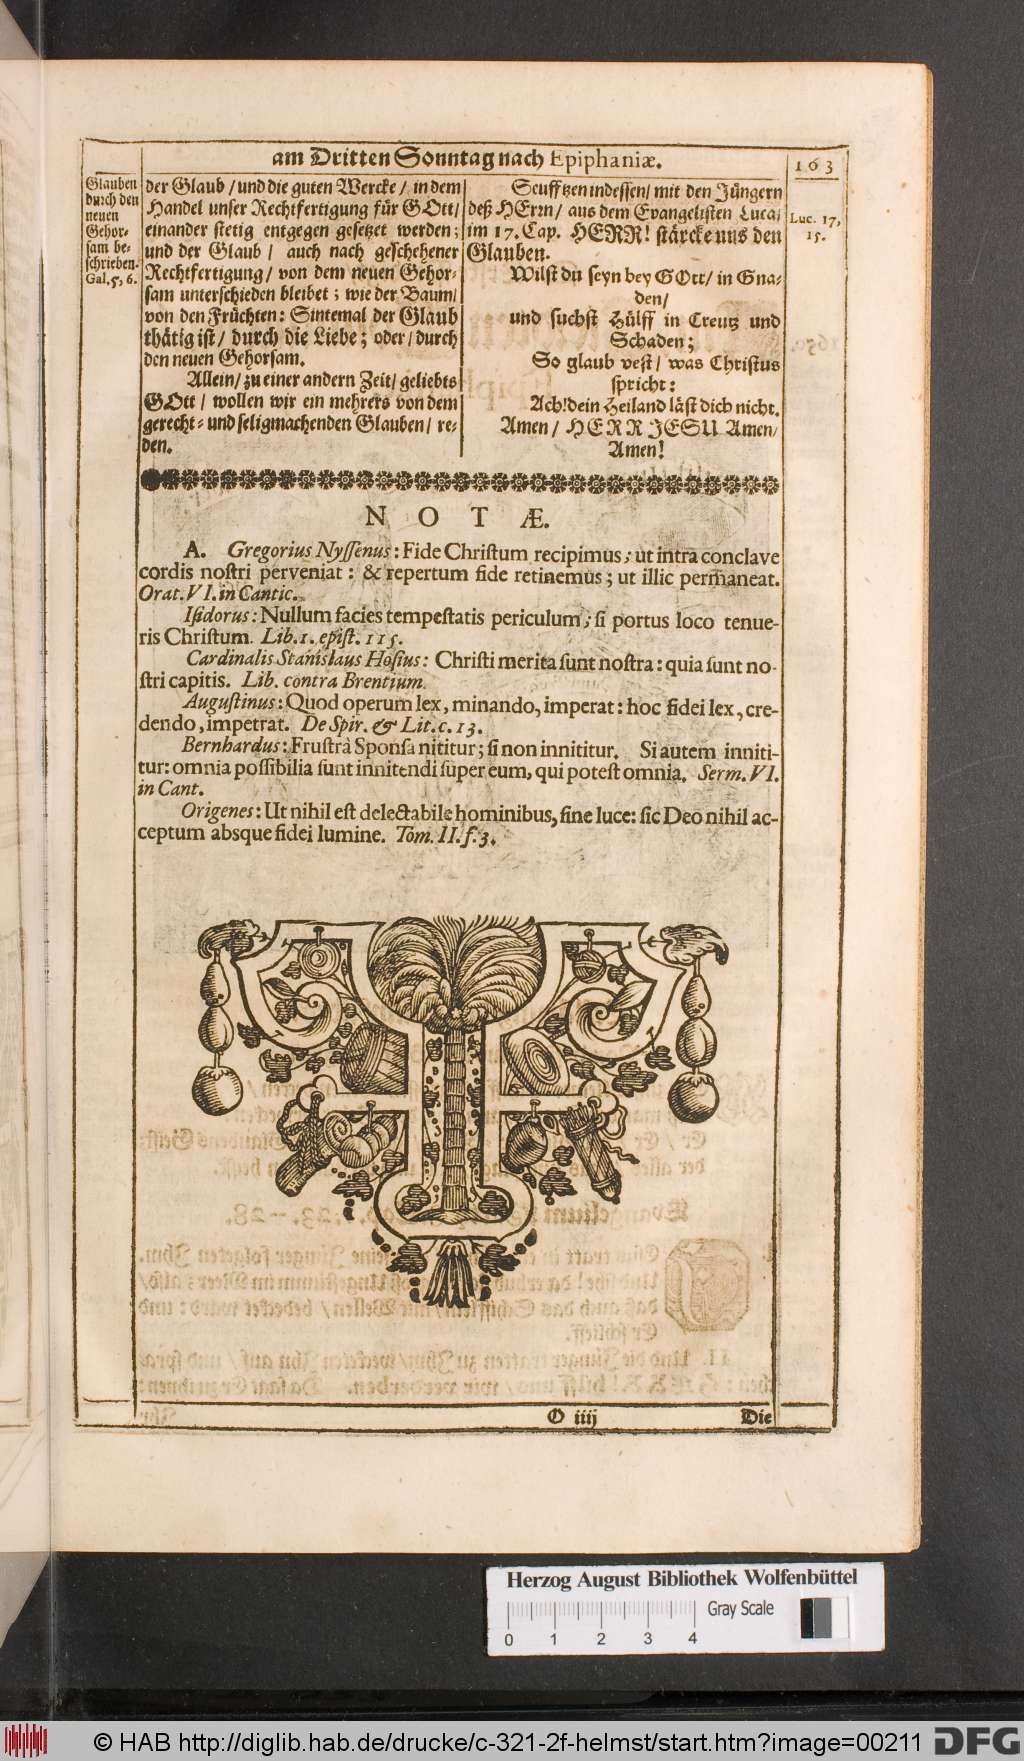 am Dritten Sonntag nach Epiphaniæ.
163
Glauben
durch den
neuen
Gehor-
sam be-
schrieben.
Gal. 5, 6.
der Glaub / und die guten Wercke / in dem
Handel unser Rechtfertigung für GOtt /
einander stetig entgegen gesetzet werden;
und der Glaub / auch nach geschehener
Rechtfertigung / von dem neuen Gehor-
sam unterschieden bleibet; wie der Baum /
von den Früchten: Sintemal der Glaub
thätig ist / durch die Liebe; oder / durch
den neuen Gehorsam.
Allein / zu einer andern Zeit / geliebts
GOtt / wollen wir ein mehrers von dem
gerecht- und seligmachenden Glauben / re-
den.
Seufftzen indessen / mit den Jüngern
deß HErrn / aus dem Evangelisten Luca /
im 17. Cap. HERR! stärcke uns den
Glauben.
Wilst du seyn bey GOtt / in Gna-
den /
und suchst Hülff in Creutz und
Schaden;
So glaub vest / was Christus
spricht:
Ach! dein Heiland läst dich nicht.
Amen / HERR JESU Amen /
Amen!
Luc. 17,
15.
NOTÆ.
A. Gregorius Nyssenus: Fide Christum recipimus; ut intra conclave
cordis nostri perveniat: & repertum fide retinemus; ut illic permaneat.
Orat. VI. in Cantic.
Isidorus: Nullum facies tempestatis periculum; si portus loco tenue-
ris Christum. Lib. 1. epist. 115.
Cardinalis Stanislaus Hosius: Christi merita sunt nostra: quia sunt no-
stri capitis. Lib. contra Brentium.
Augustinus: Quod operum lex, minando, imperat: hoc fidei lex, cre-
dendo, impetrat. De Spir. & Lit. c. 13.
Bernhardus: Frustrà Sponsa nititur; si non innititur. Si autem inniti-
tur: omnia possibilia sunt innitendi super eum, qui potest omnia. Serm. VI.
in Cant.
Origenes: Ut nihil est delectabile hominibus, sine luce: sic Deo nihil ac-
ceptum absque fidei lumine. Tom. II. f. 3.
O iiij
Die
Herzog August Bibliothek Wolfenbüttel
Gray Scale
0 1 2 3 4
© HAB http://diglib.hab.de/drucke/c-321-2f-helmst/start.htm?image=00211
DFG